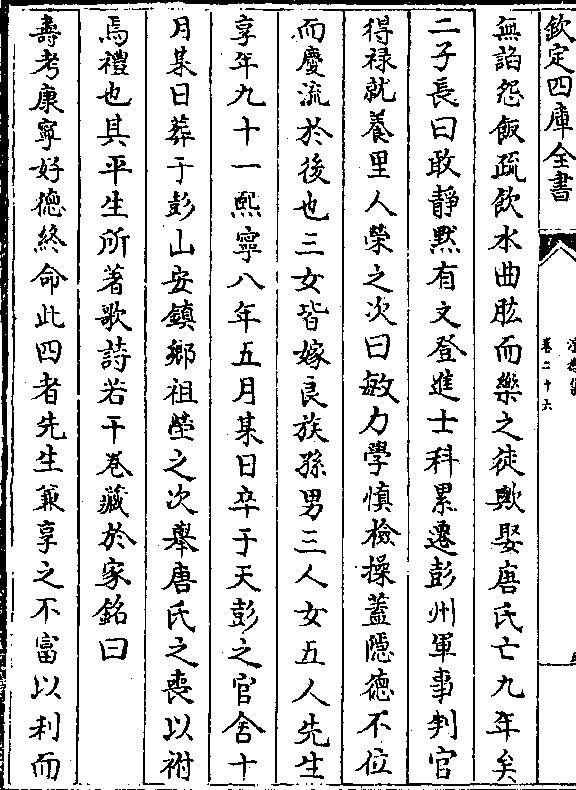 欽定四庫全書
卷二十六
無諂怨飯疏飲水曲肱而樂之徒歟娶唐氏亡九年矣
二子長曰敢靜黙有文登進士科累遷彭州軍事判官
得禄就養里人榮之次曰敏力學慎檢操蓋隱德不位
而慶流於後也三女皆嫁良族孫男三人女五人先生
享年九十一熙寧八年五月某日卒于天彭之官舍十
月某日葬于彭山安鎮鄉祖塋之次舉唐氏之喪以祔
焉禮也其平生所著歌詩若干卷藏於家銘曰
壽考康寧好德終命此四者先生兼享之不富以利而